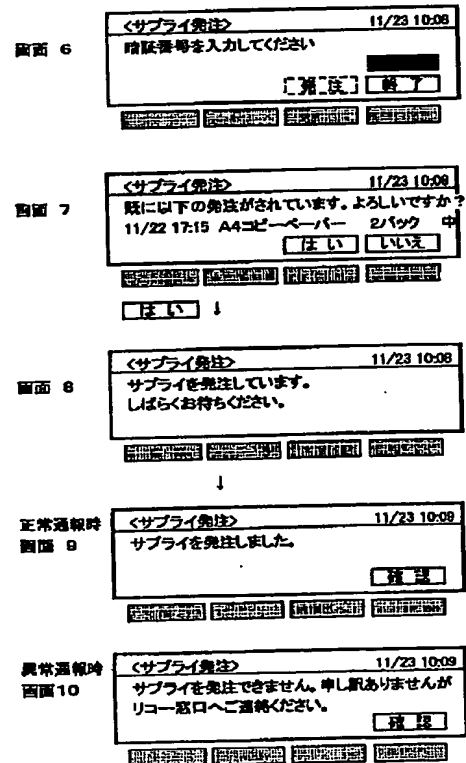 <サプライ発注> 11/23 10:08
画面 6
暗証番号を入力してください
発 注 終 了
<サプライ発注> 11/23 10:08
画面 7
既に以下の発注がされています。よろしいですか？
11/22 17:15 A4コピーペーパー 2パック 中
は い いいえ
は い ↓
<サプライ発注> 11/23 10:08
画面 8
サプライを発注しています。
しばらくお待ちください。
↓
正常通報時
画面 9
<サプライ発注> 11/23 10:09
サプライを発注しました。
確 認
異常通報時
画面10
<サプライ発注> 11/23 10:09
サプライを発注できません。申し訳ありませんが
リコー窓口へご連絡ください。
確 認